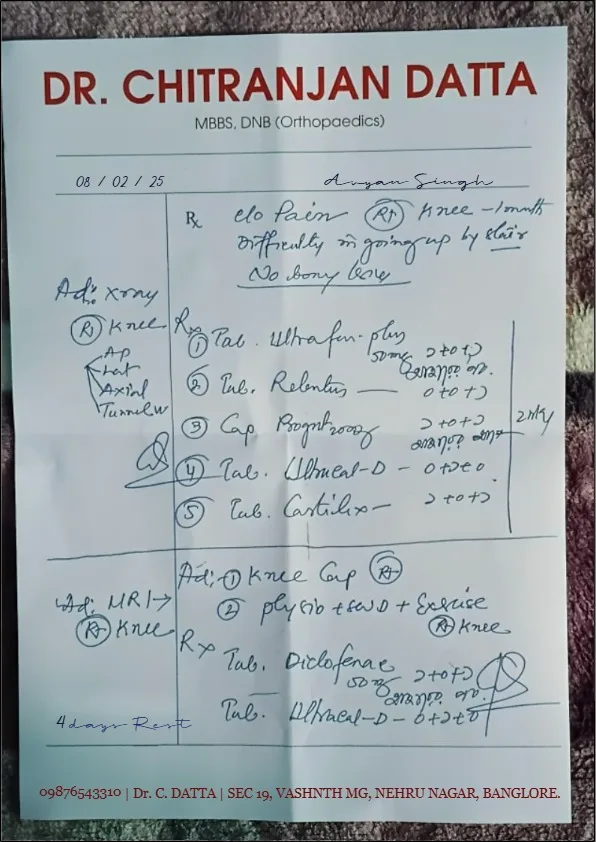 DR. CHITRANJAN DATTA
MBBS, DNB (Orthopaedics)
08 / 02 / 25
Aryan Singh
Rx c/o Pain (Rt) Knee - 1 month
Difficulty in going up by stair
No bony
Ad: Xray
(Rt) Knee
AP
Lat
Axial
Tunnel w
Rx
① Tab. Ultrafen-plus
50mg ১+০+১
খাওয়ার পর
② Tab. Relentus — ০+০+১
③ Cap ১+০+১
④ Tab. Ultracal-D - ০+১+০
⑤ Tab. Cartilix - ১+০+১
Ad: MRI →
(Rt) Knee
Ad: ① Knee Cap (Rt)
② physio + SWD + Exercise
(Rt) Knee
Rx
Tab. Diclofenac
50mg ১+০+১
খাওয়ার পর
Tab. Ultracal-D - ০+১+০
4 days Rest
09876543310 | Dr. C. DATTA | SEC 19, VASHNTH MG, NEHRU NAGAR, BANGLORE.